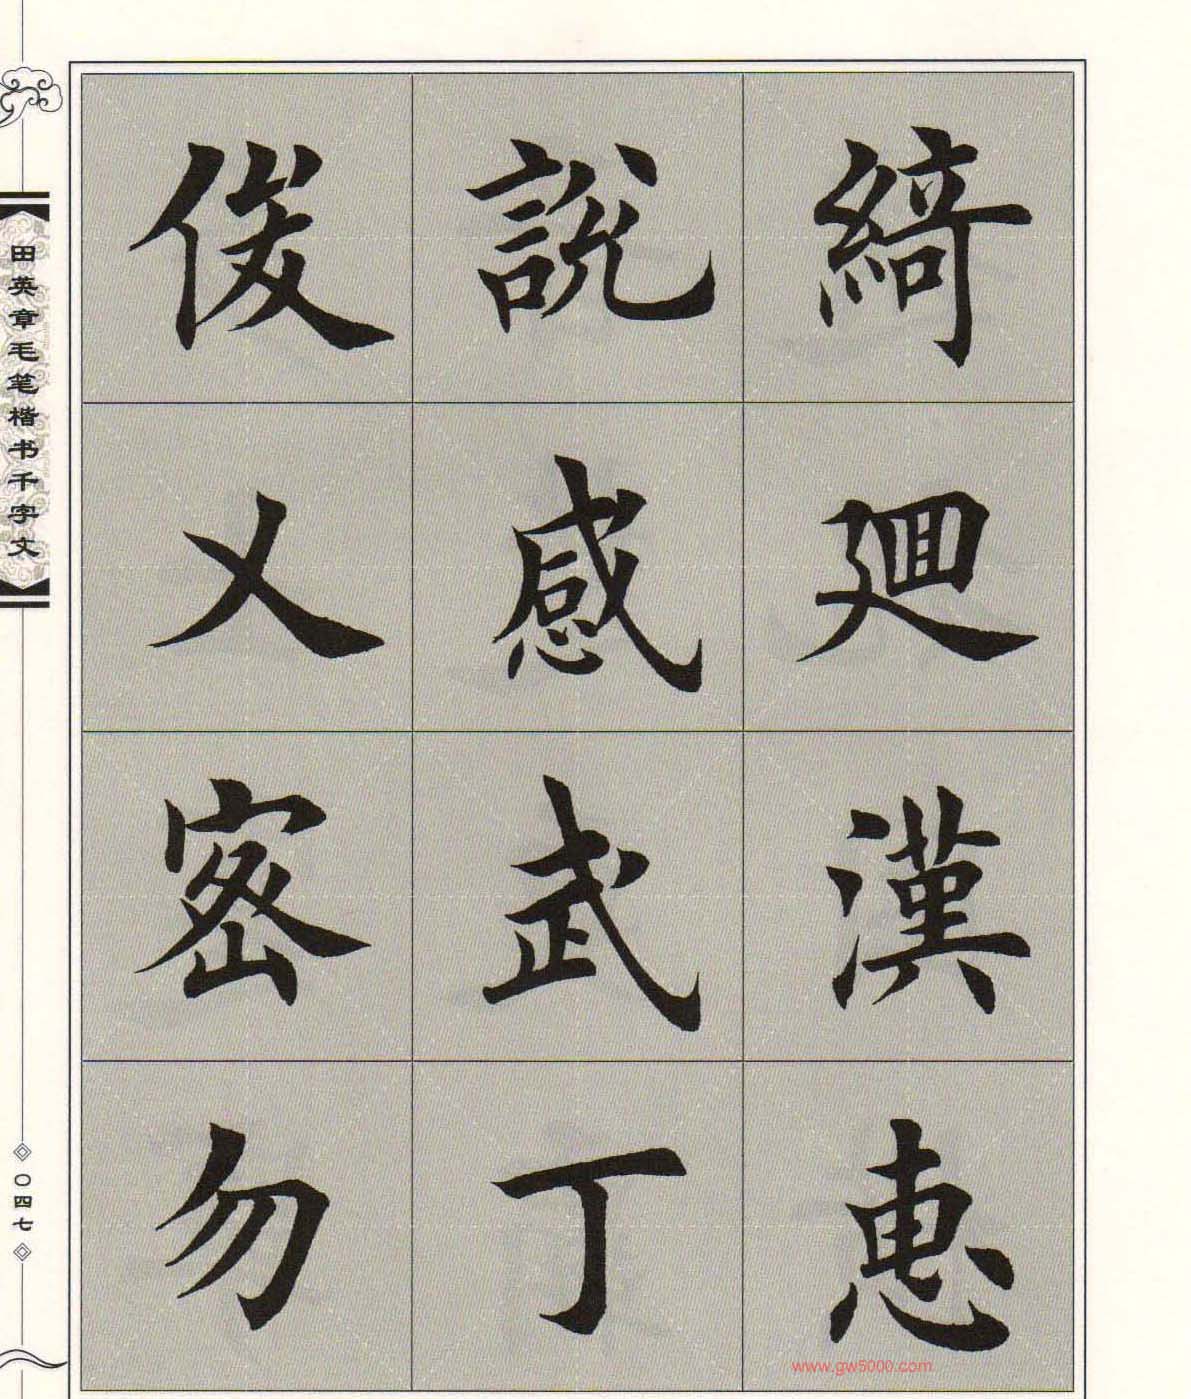 綺迴漢恵
說感武丁
俊乂密勿
田英章毛笔楷书千字文
〇四七
www.gw5000.com